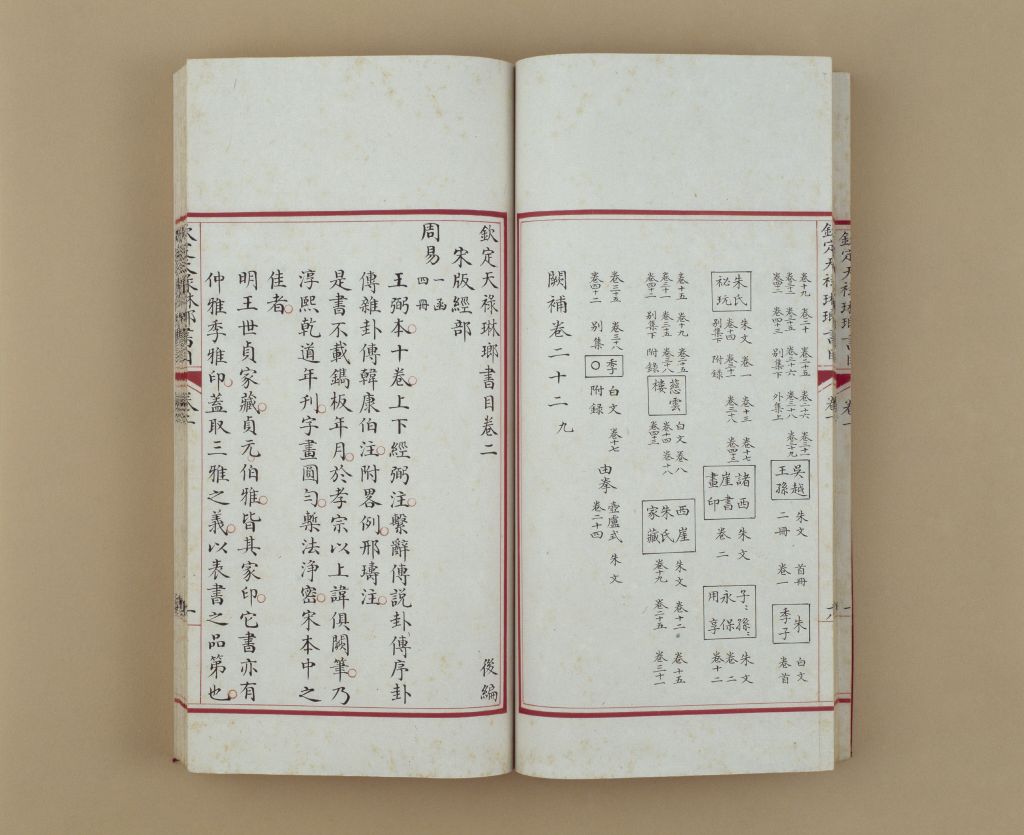 欽定天祿琳瑯書目 卷一
卷十九 卷二十 卷二十五 卷二十六 卷三十一
卷三十二 卷三十五 卷三十六 卷三十八 卷三十九
卷四二 卷四十三 別集下 外集上
吳越王孫 朱文 二冊 首冊 卷一
朱季子 白文 卷首
朱氏祕玩 朱文 卷一 卷十三 卷十七
卷十四 卷三十一 卷三十八 卷四三
別集下 附錄
諸西崖書畫印 朱文 卷二
子孫永保用享 朱文 卷二 卷十二
卷十五 卷十九 卷二十五
卷三十一 卷三十五 卷三十八
別集下 附錄
慈雲樓 白文 卷八 卷十四 卷十八 卷四三
西崖朱氏家藏 朱文 卷十二 卷十五
卷十九 卷二十五 卷三十一
卷三十五 卷三十八
卷四十二 別集
季〇 白文 附錄 卷十七
由拳 壺盧式 朱文 卷二十四
闕補卷二十二 九
欽定天祿琳瑯書目卷二 後編
宋版經部
周易 一函四冊
王弼本十卷上下經弼注繫辭傳説卦傳序卦
傳雜卦傳韓康伯注附畧例邢璹注
是書不載鐫板年月於孝宗以上諱俱闕筆乃
淳熙乾道年刊字畫圓勻槧法浄密宋本中之
佳者
明王世貞家藏貞元伯雅皆其家印它書亦有
仲雅季雅印蓋取三雅之義以表書之品第也